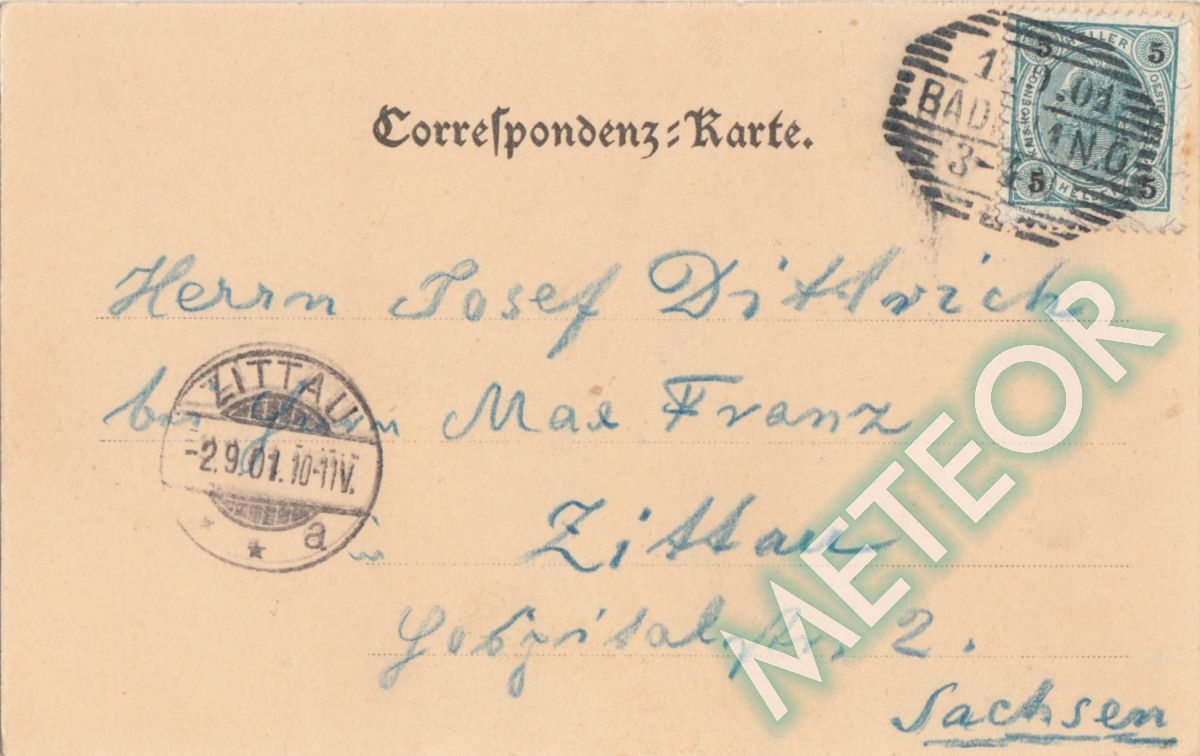 Correspondenz-Karte.
5 HELLER 5
1.9.01
BAD
IN.Ö
3-4
5 HELLER 5
Herrn Josef Dittrich
bei Herrn Max Franz
in Zittau
Hospitalstr. 2.
Sachsen
ZITTAU
-2.9.01. 10-11V.
* a
METEOR